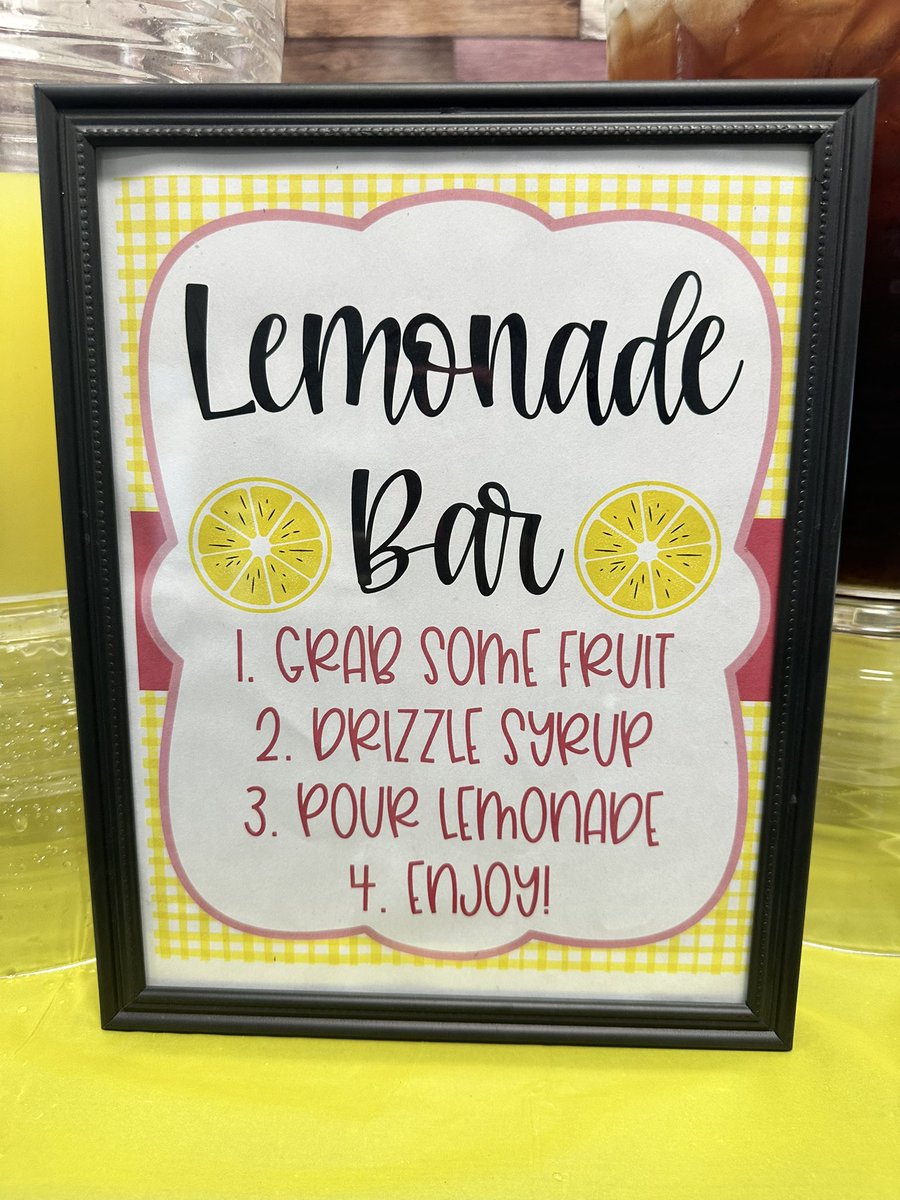 Lemonade
Bar
1. GRAB SOME FRUIT
2. DRIZZLE SYRUP
3. POUR LEMONADE
4. ENJOY!